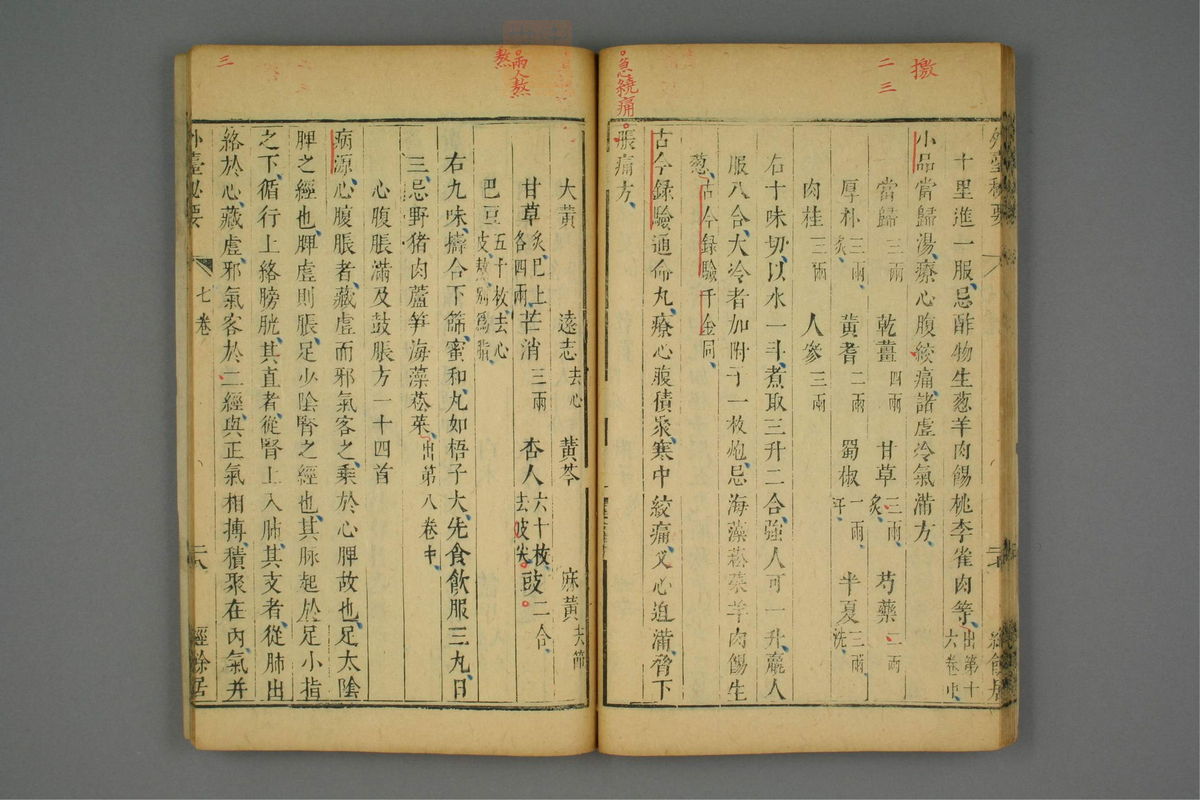 外臺秘要
十里進一服、忌酢物生葱羊肉餳桃李雀肉等、出第十六卷中、
小品當歸湯療心腹絞痛諸虛冷氣滿方、
當歸三兩 乾薑四兩 甘草三兩炙 芍藥二兩
厚朴三兩炙 黃耆二兩 蜀椒一兩汗 半夏三兩洗
肉桂三兩 人參三兩
右十味切、以水一斗、煮取三升二合、強人可一升、羸人
服八合、大冷者加附子一枚炮、忌海藻菘菜羊肉餳生
葱、古今録驗千金同、
古今録驗通命丸、療心腹積聚、寒中絞痛、又心迫滿、脅下
脹痛方、
急繞痛
撽
二
三
大黃 遠志去心 黃芩 麻黃去節
甘草炙巴上各四兩 芒消三兩 杏人六十枚去皮尖 豉二合、
巴豆五十枚去心皮熬別爲脂、
右九味、擣合下篩、蜜和、丸如梧子大、先食飲服三丸、日
三、忌野猪肉蘆笋海藻菘菜、出第八卷中、
心腹脹滿及鼓脹方一十四首
病源心腹脹者、藏虛而邪氣客之、乘於心脾故也、足太陰
脾之經也、脾虛則脹、足少陰腎之經也、其脉起於足小指
之下、循行上絡膀胱、其直者、從腎上入肺、其支者、從肺出
絡於心、藏虛、邪氣客於二經、與正氣相搏、積聚在內、氣并
外臺秘要 七卷 二十八 經餘居
兩人熬
熬
三